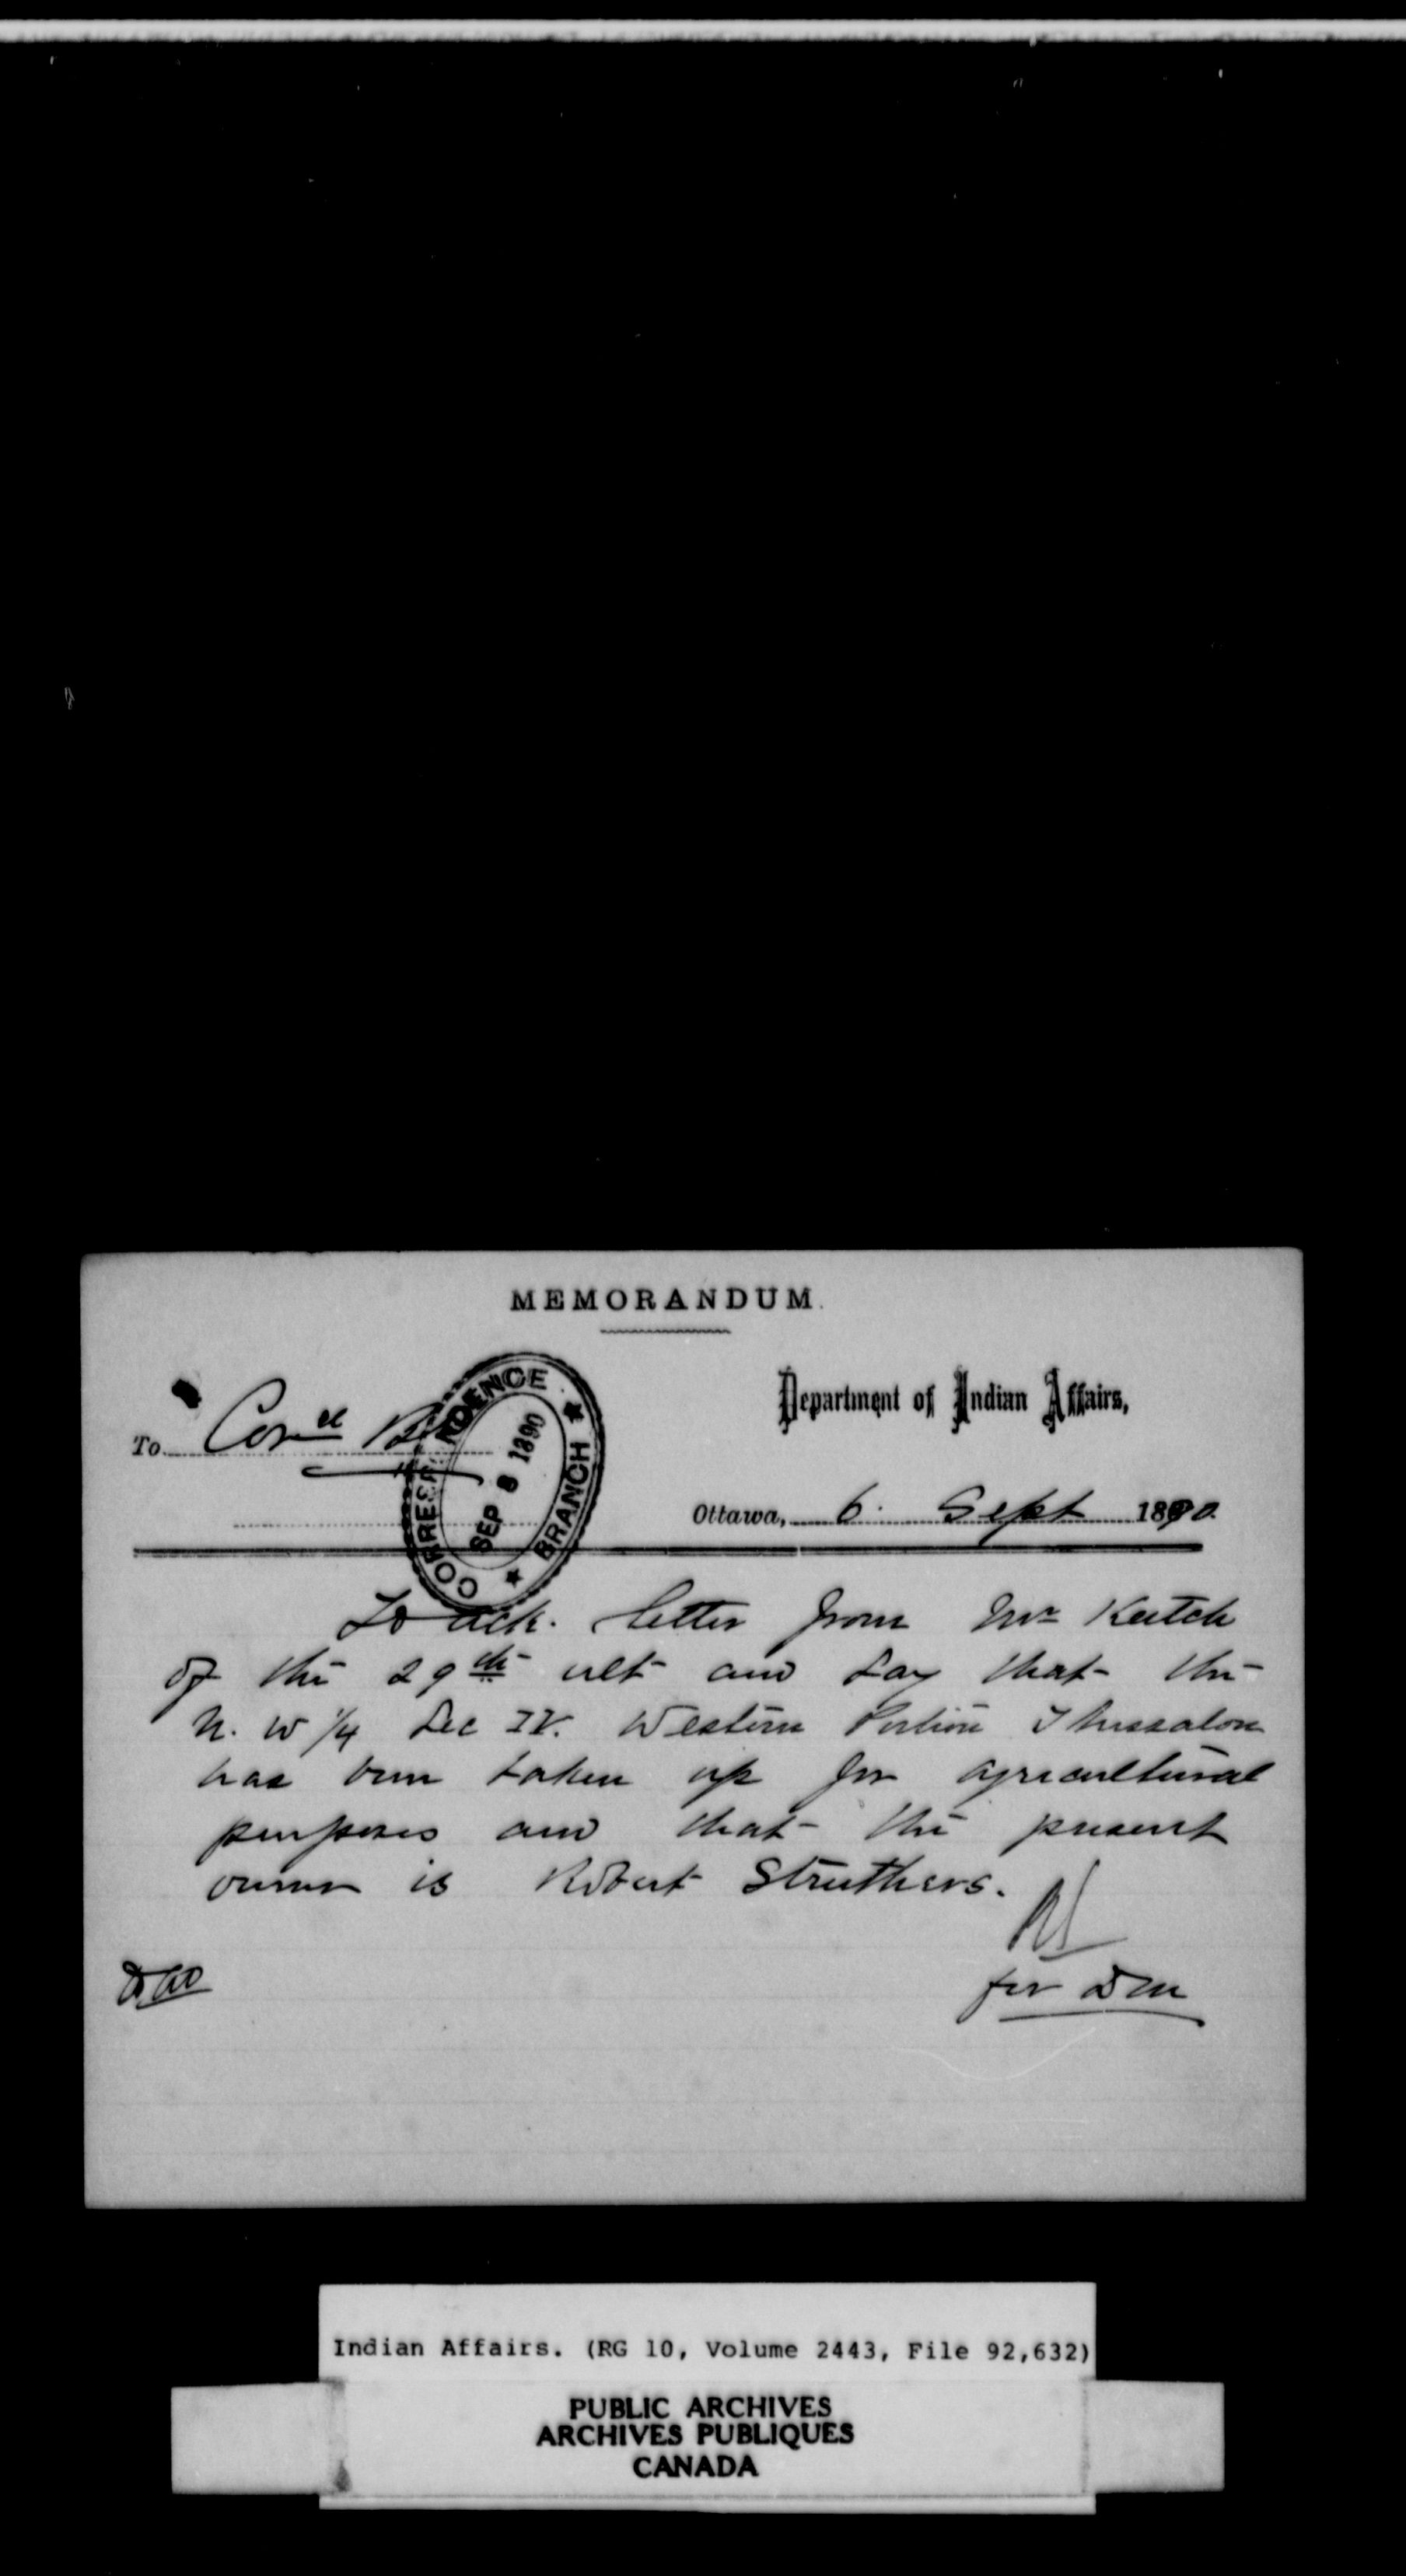 MEMORANDUM.
Department of Indian Affairs,
To
CORRESPONDENCE BRANCH
SEP 8 1890
Ottawa, 6. Sept 1890.
To ack. letter from Mr Keitch
of the 29th ult and say that the
N. W 1/4 Sec Western Portion Thessalon
has been taken up for agricultural
purposes and that the present
owner is Robert Struthers.
for DM
Indian Affairs. (RG 10, Volume 2443, File 92,632)
PUBLIC ARCHIVES
ARCHIVES PUBLIQUES
CANADA